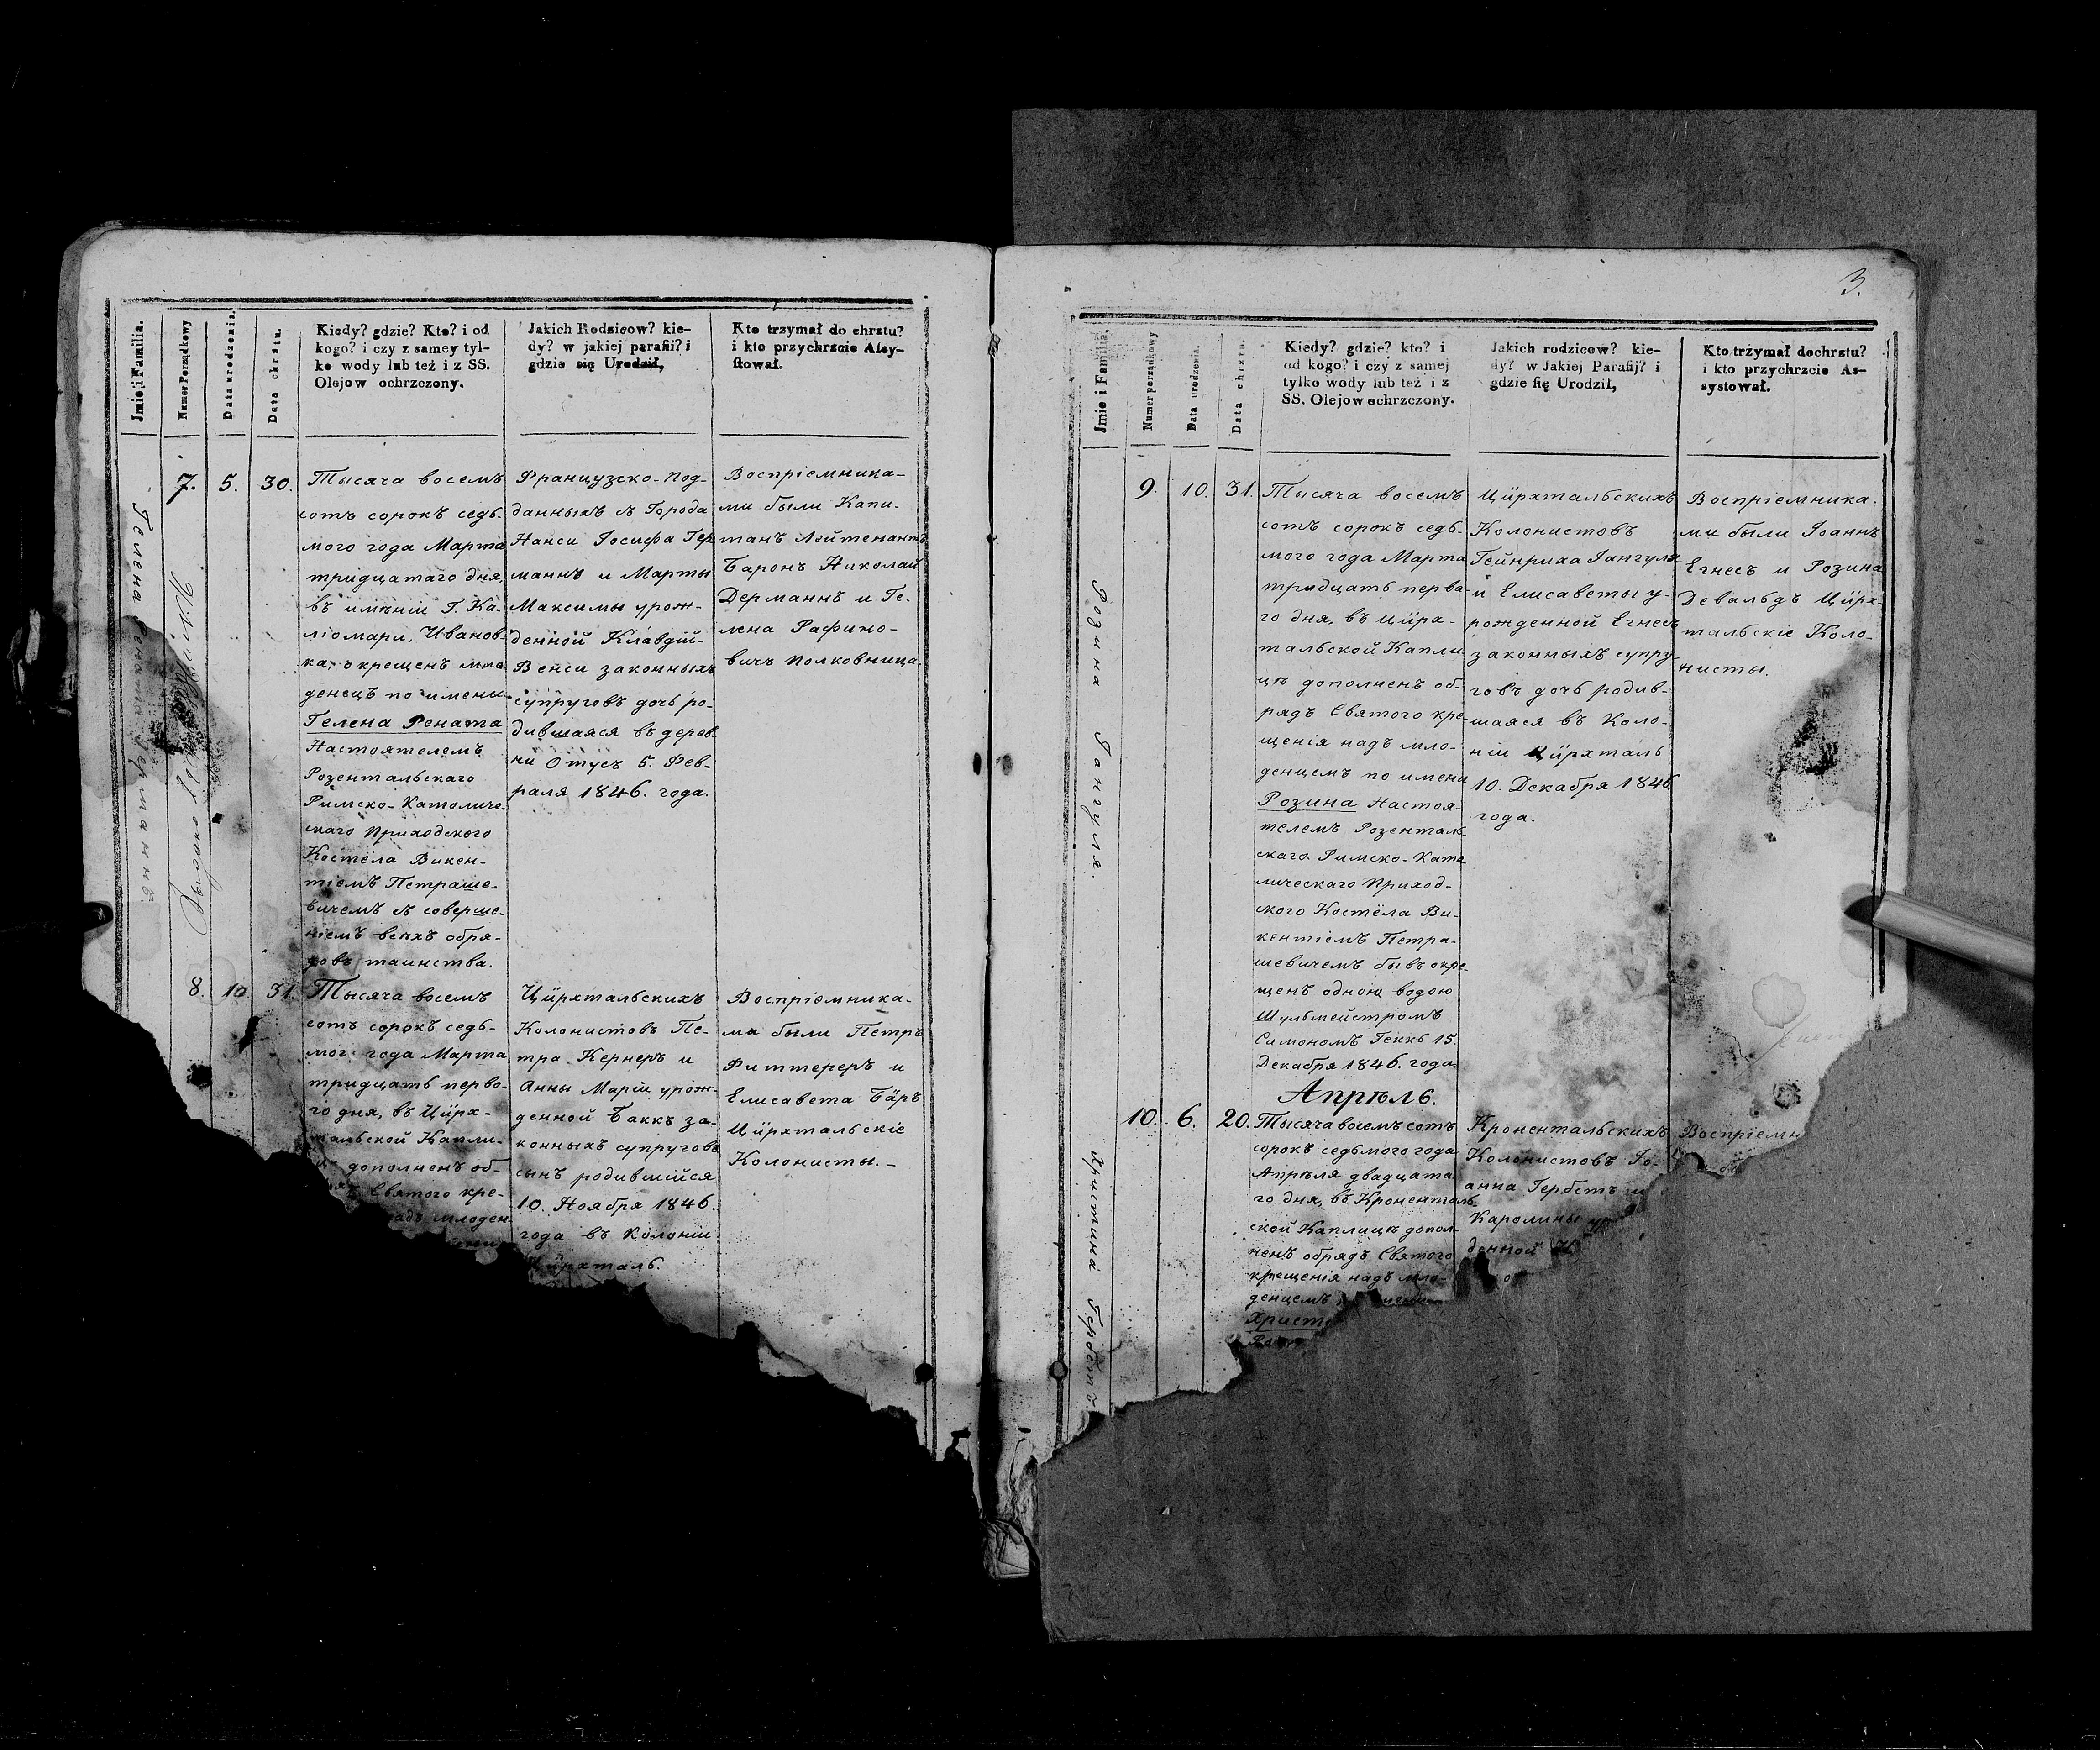 Jmie i Familia.
Numer Porządkowy
Data urodzenia.
Data chrztu.
Kiedy? gdzie? Kto? i od
kogo? i czy z samey tyl-
ko wody lub też i z SS.
Olejow ochrzczony.
Jakich Rodzicow? kie-
dy? w jakiej parafii? i
gdzie się Urodził,
Kto trzymał do chrztu?
i kto przychrzcie Assy-
stował.
Гелена Рената Германнъ
7.
5.
30.
Тысяча восемъ
сотъ сорокъ седь-
мого года Марта
тридцатаго дня,
въ имѣніи Г. Ка-
ліомари, Иванов-
ка, окрещенъ мла-
денецъ по имени
Гелена Рената
Настоятелемъ
Розентальскаго
Римско-Католиче-
скаго Приходского
Костёла Викен-
тіемъ Петраше-
вичемъ съ соверше-
ніемъ всѣхъ обря-
довъ таинства.
Французско-под-
данныхъ съ Города
Нанси Іосифа Гер
маннъ и Марты
Максимы урож-
денной Клавдій-
Венси законныхъ
супруговъ дочь ро-
дившаяся въ дерев-
ни Отусъ 5. Фев-
раля 1846. года.
Воспріемника-
ми были Капи-
танъ Лэйтенантъ
Баронъ Николай
Дерманнъ и Ге-
лена Рафино-
вичъ Полковница.
8.
10.
31.
Тысяча восемъ
сотъ сорокъ седь-
мого года Марта
тридцать перво-
го дня, въ Цирх-
тальской Капли-
дополненъ об-
Святого кре-
млоден
Цирхтальскихъ
Колонистовъ Пе-
тра Кернеръ и
Анны Маріи урож-
денной Баккъ за-
конныхъ супруговъ
сынъ родившійся
10. Ноября 1846.
года въ Колоніи
Цирхталь.
Воспріемника-
ми были Петръ
Фиттереръ и
Елисавета Бäръ
Цирхтальскіе
Колонисты.-
3.
Jmie i Familia.
Numer porządkowy
Data urodzenia.
Data chrztu.
Kiedy? gdzie? kto? i
od kogo? i czy z samej
tylko wody lub też i z
SS. Olejow ochrzczony.
Jakich rodzicow? kie-
dy? w Jakiej Parafij? i
gdzie się Urodził,
Kto trzymał dochrztu?
i kto przychrzcie As-
systował.
Розина Гангуля.
9.
10.
31.
Тысяча восемъ
сотъ сорокъ седь-
мого года Марта
тридцать перва-
го дня, въ Цирх-
тальской Капли
цѣ дополненъ об-
рядъ Святого кре-
щенія надъ мло-
денцемъ по имени
Розина Настоя-
телемъ Розенталь
скаго Римско-Като
лическаго Приход-
ского Костёла Ви-
кентіемъ Петра-
шевичемъ бывъ окре-
щенъ одною водою
Шульмейстромъ
Симономъ Геккъ 15.
Декабря 1846. года
Цирхтальскихъ
Колонистовъ
Гейнриха Іангуля
и Елисаветы у-
рожденной Егнесъ
законныхъ супру-
говъ дочь родив-
шаяся въ Коло-
ніи Цирхталь
10. Декабря 1846
года.
Воспріемника-
ми были Іоаннъ
Егнесъ и Розина
Девальдъ Цирх-
тальскіе Коло-
нисты.
Апрѣль.
Христина Гербетъ
10.
6.
20.
Тысяча восемъ сотъ
сорокъ седьмого года
Апрѣля двадцата
го дня, въ Кроненталь-
ской Каплицѣ допол-
ненъ обрядъ Святого
крещенія надъ мло-
денцемъ
Христ
Кронентальскихъ
Колонистовъ Іо-
анна Гербетъ и
Каролины ур
денной
Воспріемн